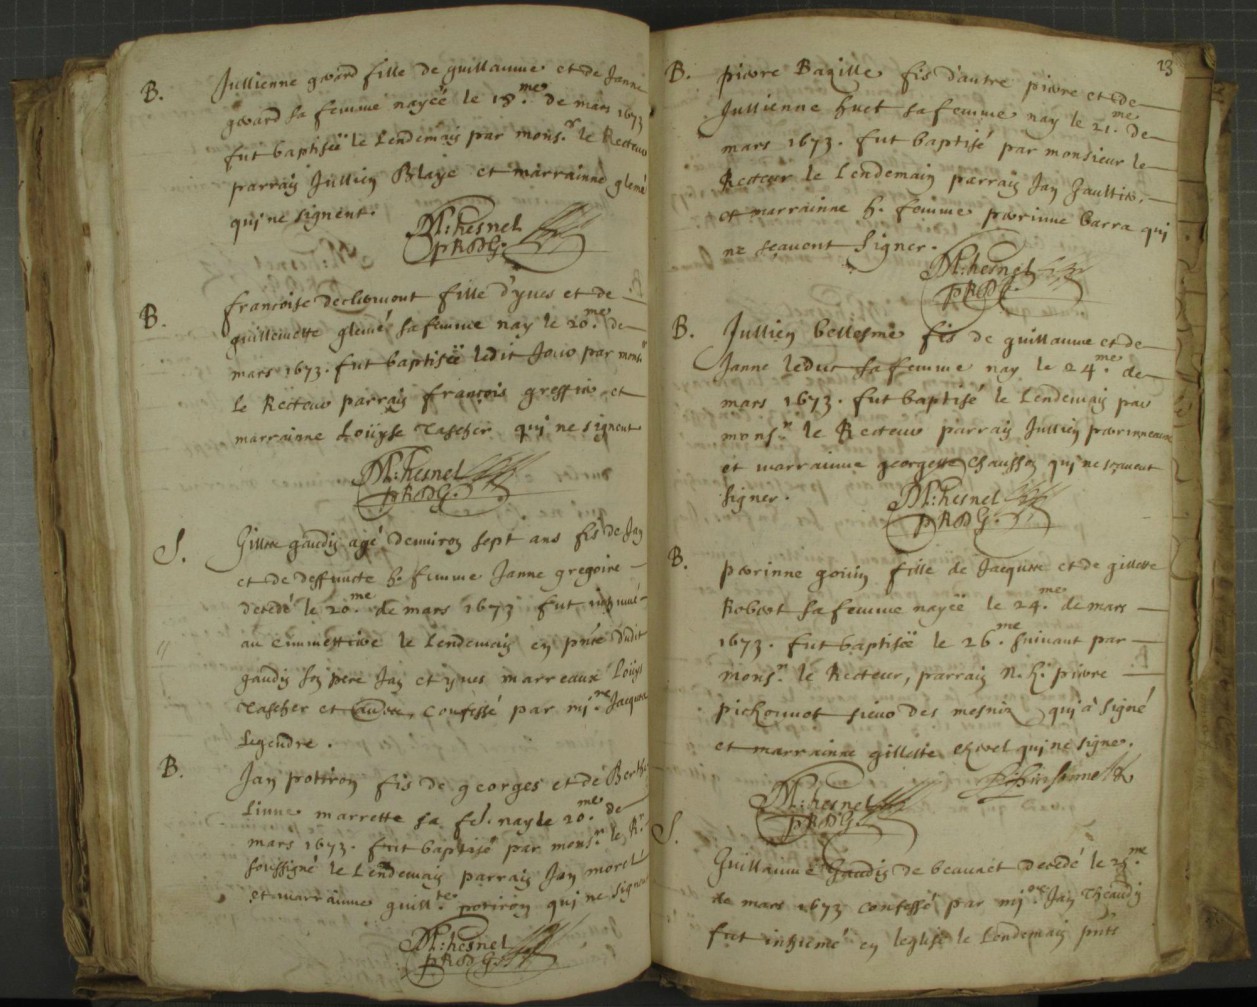 B. Jullienne gerard fille de guillaume et de Janne
gerard sa femme nayëe le 18.me de mars 1673
fut baptisëe le Lendemain par mons.r le Recteur
parrain Jullien Blaye et marrainne glemé
qui ne signent.
M: hesnel
pRdDG.
B. francoise declermont fille d'yves et de
guillemette glemé sa femme nay le 20.me de
mars 1673. fut baptisëe ledit Jour par mons.r
le Recteur parrain françois greffier et
marrainne Loüyse Tascher qui ne signent
M: hesnel
pRdDG.
S. Gilles gaudin agé denuiron sept ans fis de Jan
et de deffuncte h. femme Janne gregoire
decedé le 20.me de mars 1673 fut inhumé
au Cimmettiere le Lendemain en pñce dudit
gaudin son pere Jan et yves marreaux Loüys
Tascher et autres, Confessé par mi.re Jacques
Legendre.
B. Jan potiron fis de georges et de Berthe
Linne marrette sa fe. nay le 20.me de
mars 1673. fut baptisé par mons.r le R.r
soussigné le Lendemain parrain Jan morel
et marrainne guill.te potiron qui ne signent
M: hesnel
pRdDG.
13
B. pierre Bagille fis d'autre pierre et de
Jullienne huet sa femme nay le 21.me de
mars 1673. fut baptisé par monsieur le
Recteur le Lendemain parrain Jan gaultier
et marrainne h. femme perrinne barra qui
ne sçavent signer.
M: hesnel
pRdDG.
B. Jullien bellesme fis de guillaume et de
Janne leduc sa femme nay le 24.me de
mars 1673. fut baptisé le Lendemain par
mons.r le Recteur parrain Jullien perinneaux
et marrainne georgette Chausson qui ne sçavent
signer.
M: hesnel
pRdDG.
B. perrinne gouin fille de Jacques et de gillette
Robert sa femme nayëe le 24.me de mars
1673. fut baptisëe le 26.me suivant par
mons.r le Recteur, parrain N. h. pierre
pichonnot sieur des mesnix qui à signé
et marrainne gillette Chevel qui ne signe.
M: hesnel
pRdDG.
S. Guillaume gaudin de beauuet decedé le 25.me
de mars 1673 confessé par mi.re Jan Theaudin
fut inhumé en leglise le Lendemain pñts